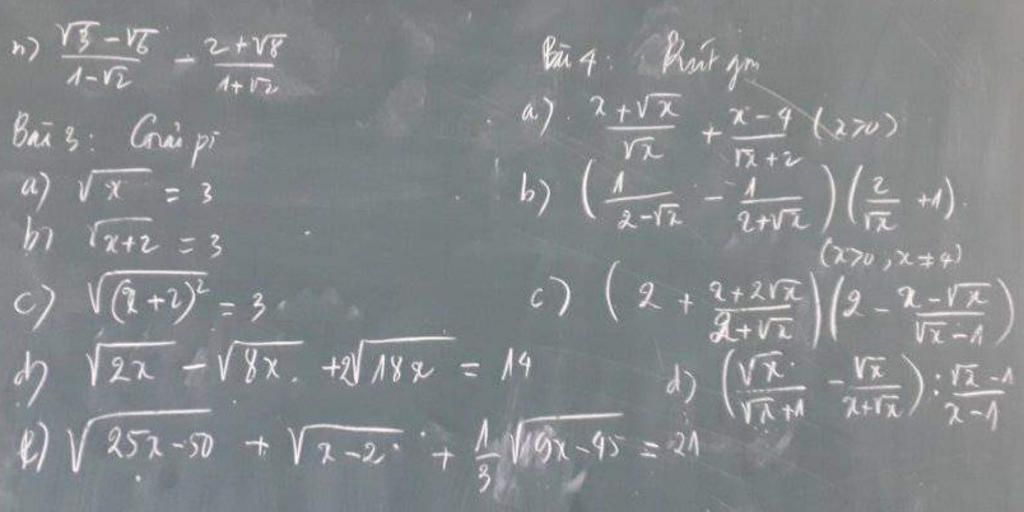 n) (√3 − √6)/(1 − √2) − (2 + √8)/(1 + √2)
Bài 3: Giải pt
a) √x = 3
b) √(x+2) = 3
c) √((x+2)²) = 3
d) √(2x) − √(8x) + 2√(18x) = 14
e) √(25x−50) + √(x−2) + 1/3 √(9x−45) = 21
Bài 4: Rút gọn
a) (x + √x)/√x + (x − 4)/(√x + 2) (x>0)
b) (1/(2−√x) − 1/(2+√x))(2/√x + 1)
(x>0, x≠4)
c) (2 + (x+2√x)/(2+√x))(2 − (x−√x)/(√x−1))
d) (√x/(√x+1) − √x/(x+√x)) : (√x−1)/(x−1)